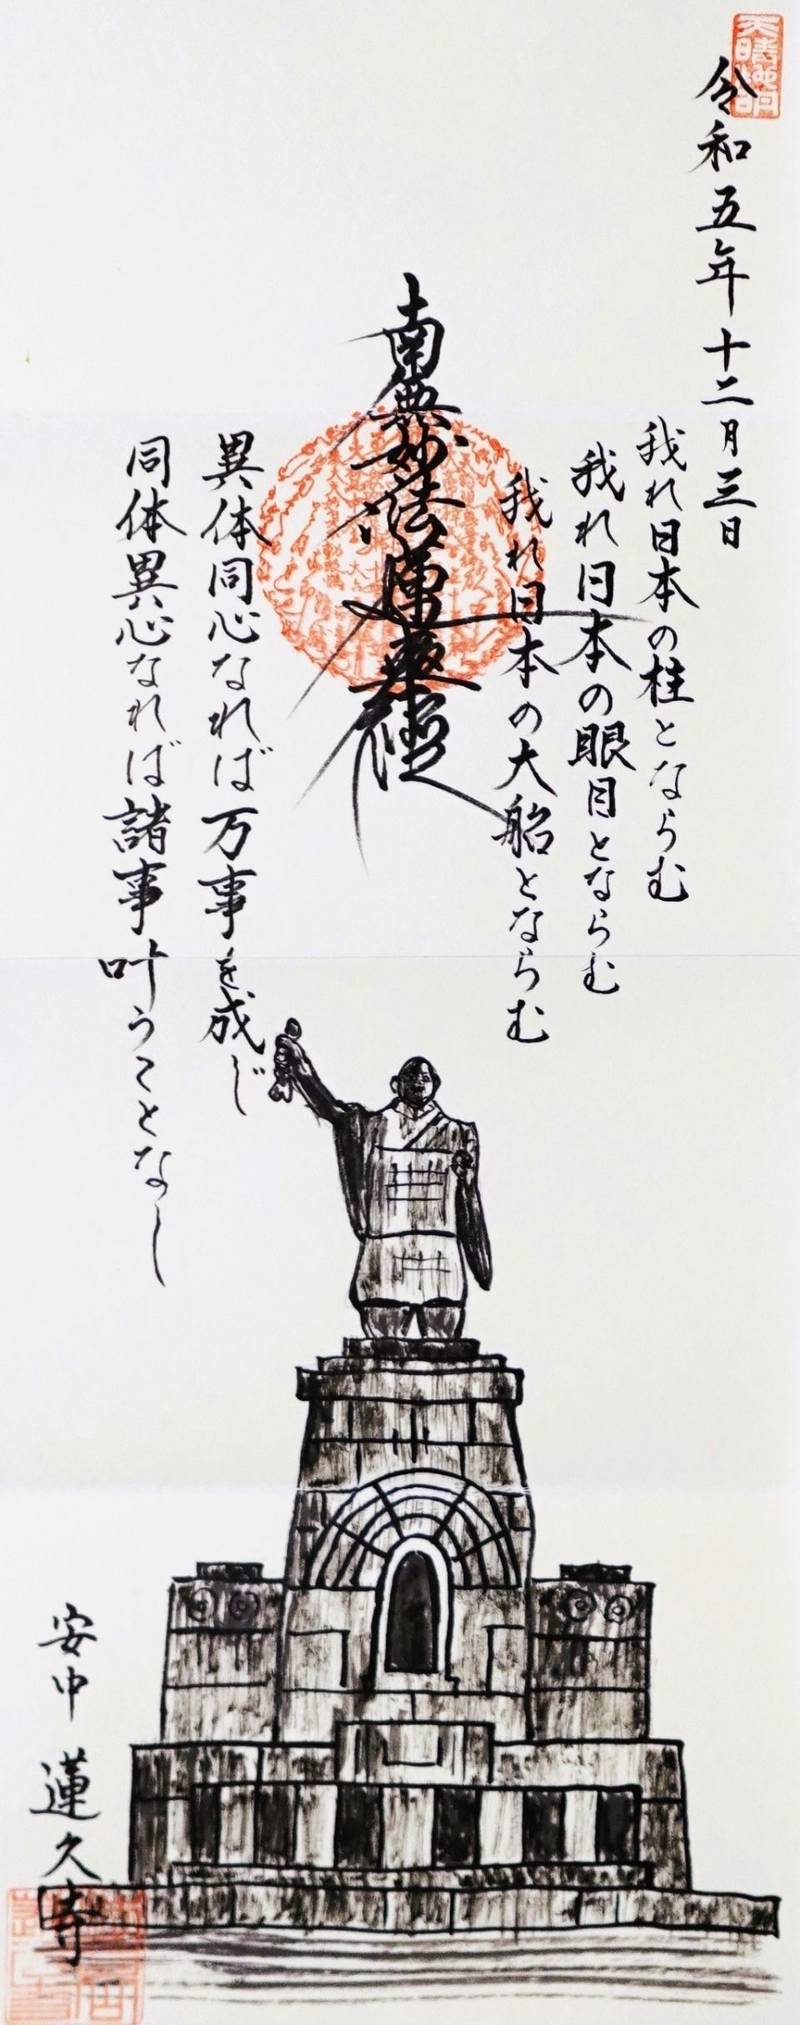 天晴地明
令和五年十二月三日
我れ日本の柱とならむ
我れ日本の眼目とならむ
我れ日本の大船とならむ
南無妙法蓮華経
異体同心なれば万事を成じ
同体異心なれば諸事叶うことなし
安中 蓮久寺